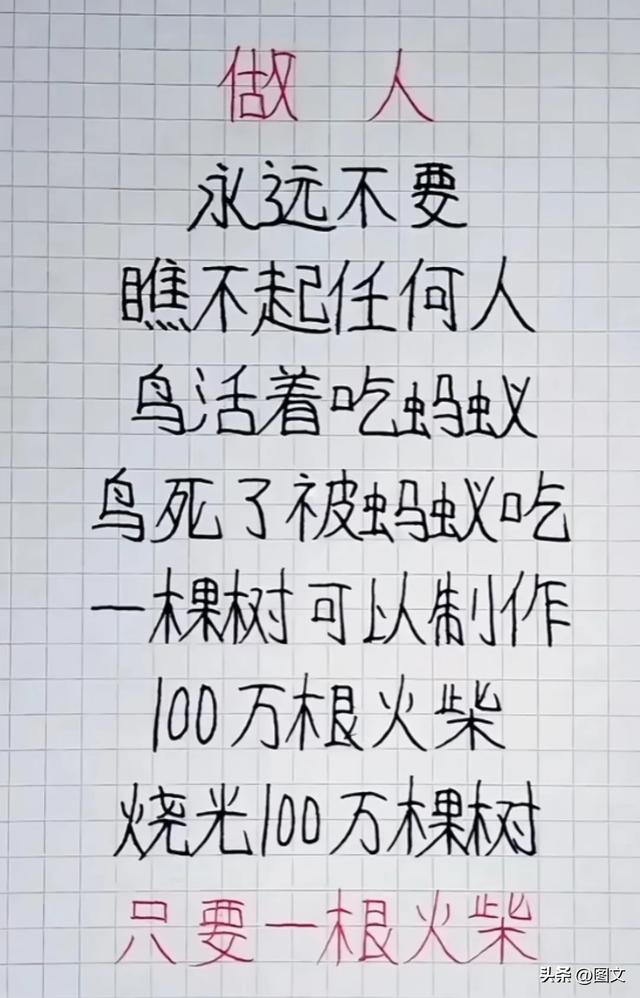 做 人
永远不要
瞧不起任何人
鸟活着吃蚂蚁
鸟死了被蚂蚁吃
一棵树可以制作
100万根火柴
烧光100万棵树
只要一根火柴
头条 @图文